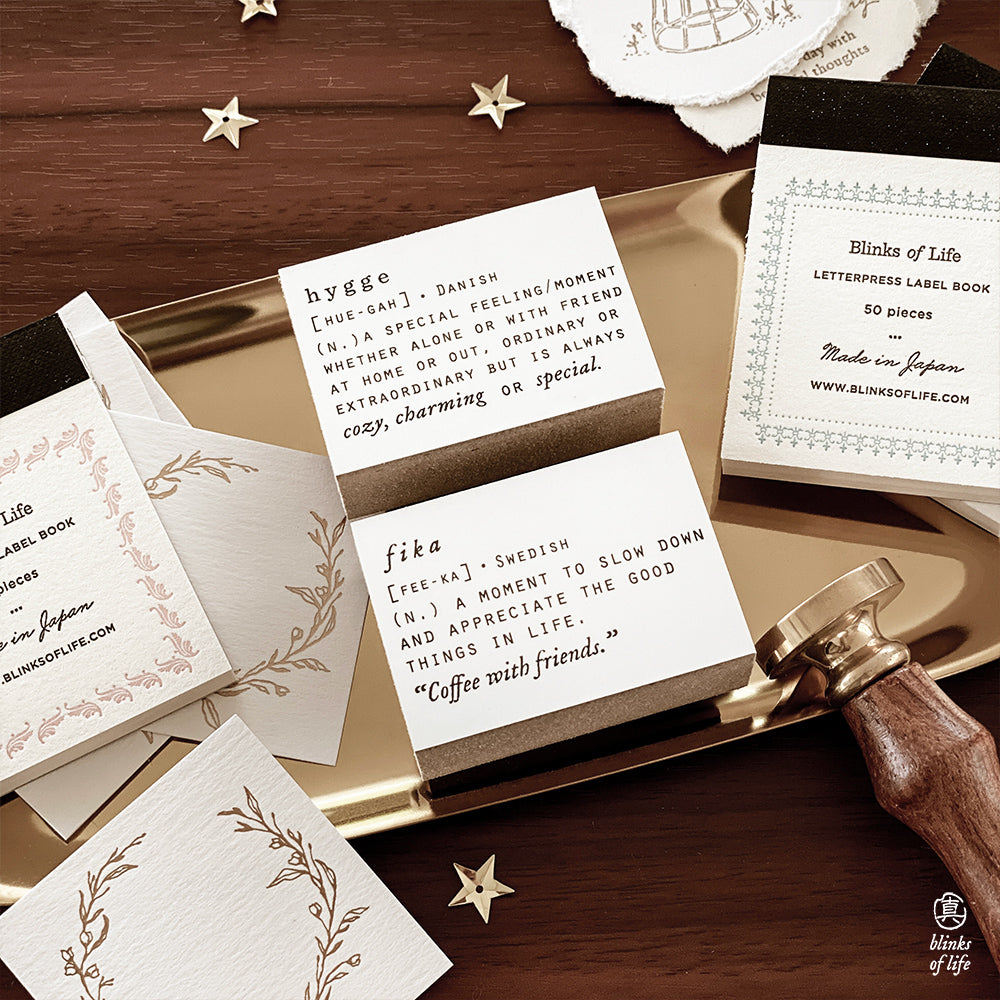 day with
thoughts
hygge
[HUE-GAH] • DANISH
(N.) A SPECIAL FEELING/MOMENT
WHETHER ALONE OR WITH FRIEND
AT HOME OR OUT, ORDINARY OR
EXTRAORDINARY BUT IS ALWAYS
cozy, charming OR special.
fika
[FEE-KA] • SWEDISH
(N.) A MOMENT TO SLOW DOWN
AND APPRECIATE THE GOOD
THINGS IN LIFE.
“Coffee with friends.”
Blinks of Life
LETTERPRESS LABEL BOOK
50 pieces
...
Made in Japan
WWW.BLINKSOFLIFE.COM
Life
LABEL BOOK
pieces
...
in Japan
.BLINKSOFLIFE.COM
真
blinks
of life